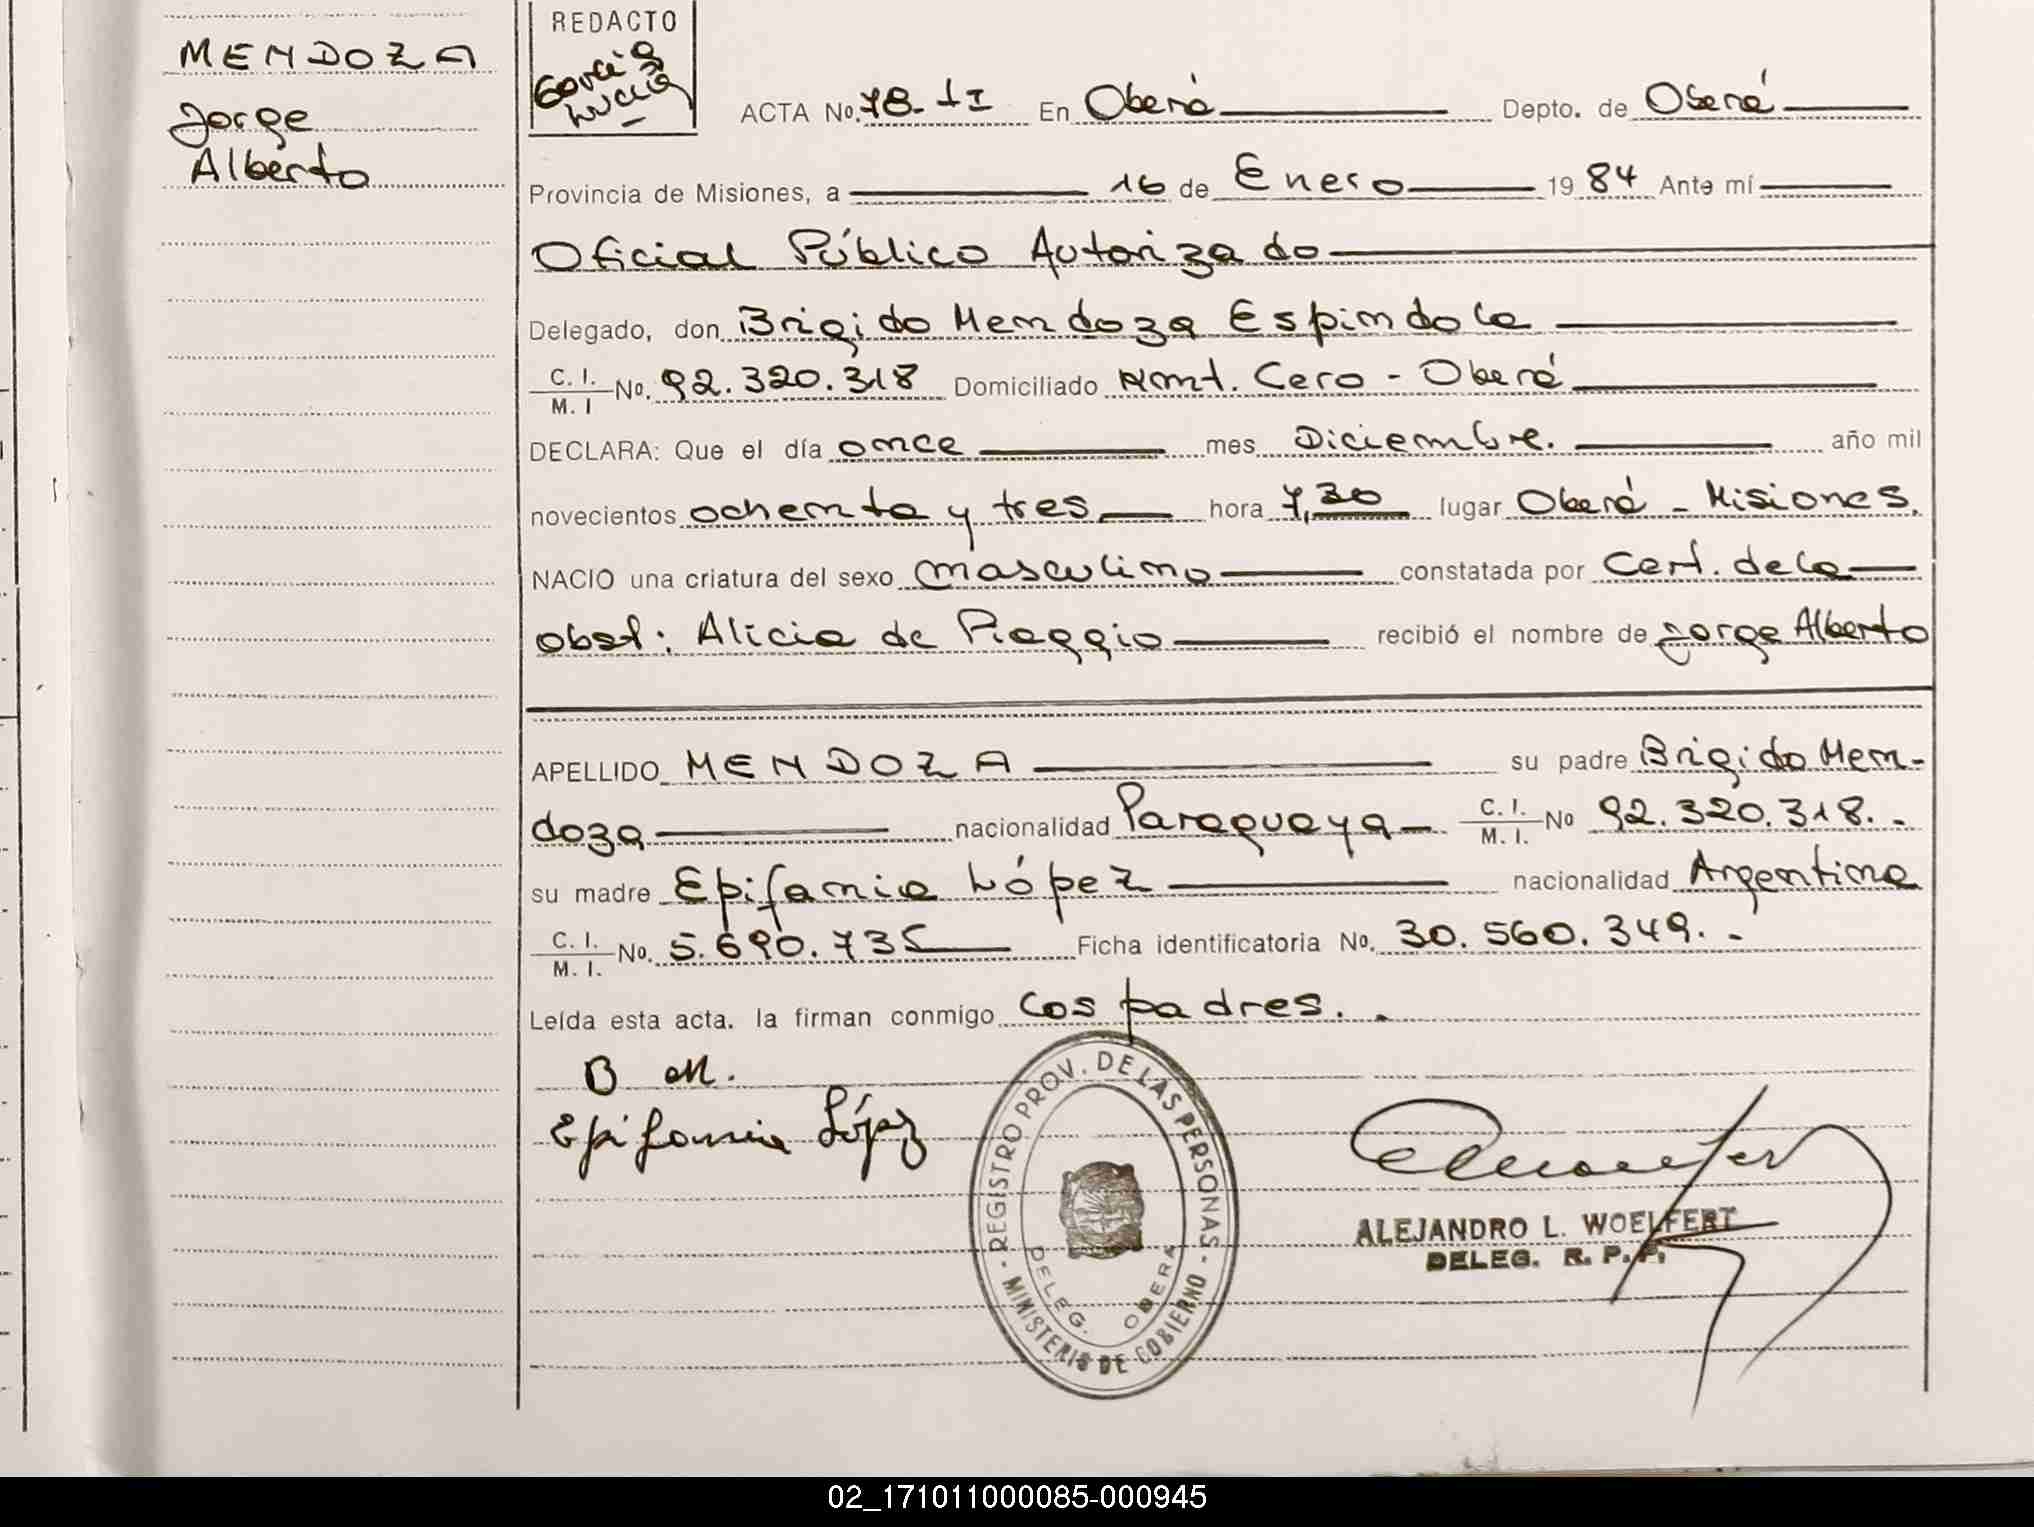 MENDOZA
Jorge
Alberto
REDACTO
García
Lucía
ACTA No. 78-II En Oberá Depto. de Oberá
Provincia de Misiones, a 16 de Enero 1984 Ante mí
Oficial Público Autorizado
Delegado, don Brigido Mendoza Espindola
C. I. M. I No. 92.320.318 Domiciliado Kmt. Cero - Oberá
DECLARA: Que el día once mes Diciembre. año mil
novecientos ochenta y tres hora 7,30 lugar Oberá - Misiones.
NACIO una criatura del sexo masculino constatada por Cert. de la
obst: Alicia de Piaggio recibió el nombre de Jorge Alberto
APELLIDO MENDOZA su padre Brigido Men-
doza nacionalidad Paraguaya C. I. M. I. No 92.320.318.-
su madre Epifania López nacionalidad Argentina
C. I. M. I. No. 5.690.735 Ficha identificatoria No. 30.560.349.-
Leída esta acta. la firman conmigo Los padres.-
B M.
Epifania López
- REGISTRO PROV. DE LAS PERSONAS -
MINISTERIO DE GOBIERNO
DELEG. OBERA
ALEJANDRO L. WOELFERT
DELEG. R. P. P.
02_171011000085-000945